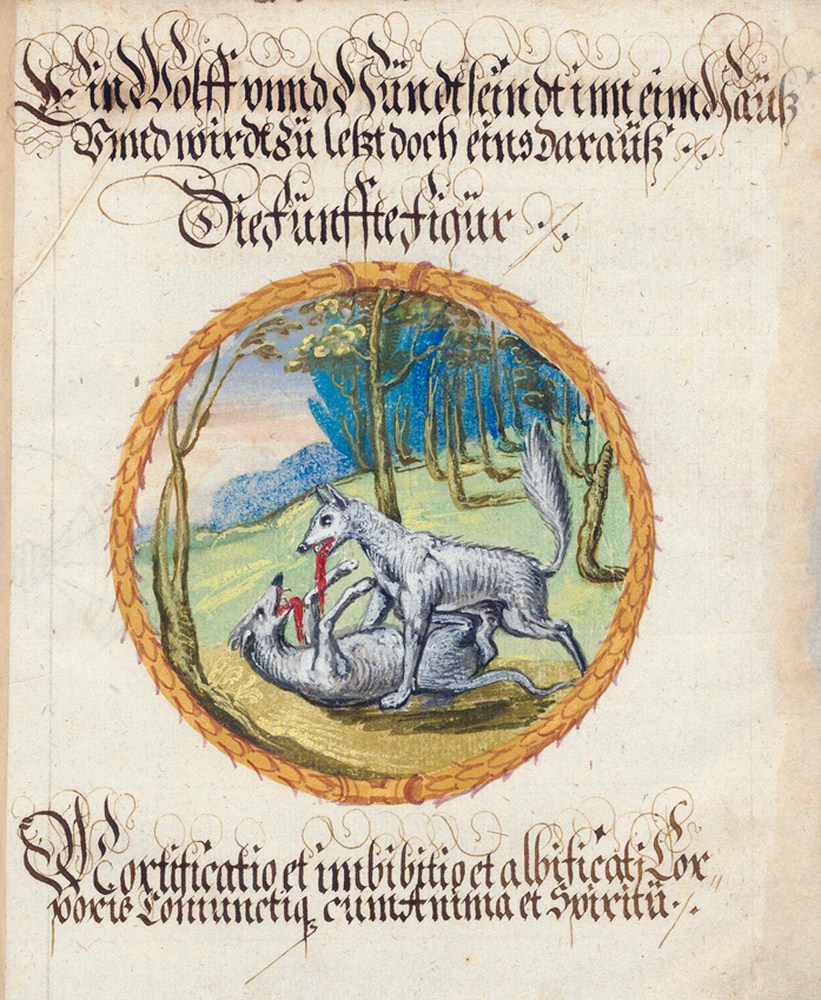 Ein Wolff vnnd Hündt seindt inn eim Hauß
Vnnd wirdt zü letzt doch eins darauß ./.
Die fünffte figür ./.
Mortificatio et imbibitio et albificatj Cor„
poris Coniunctiq₃ cum Anima et Spiritü ./.